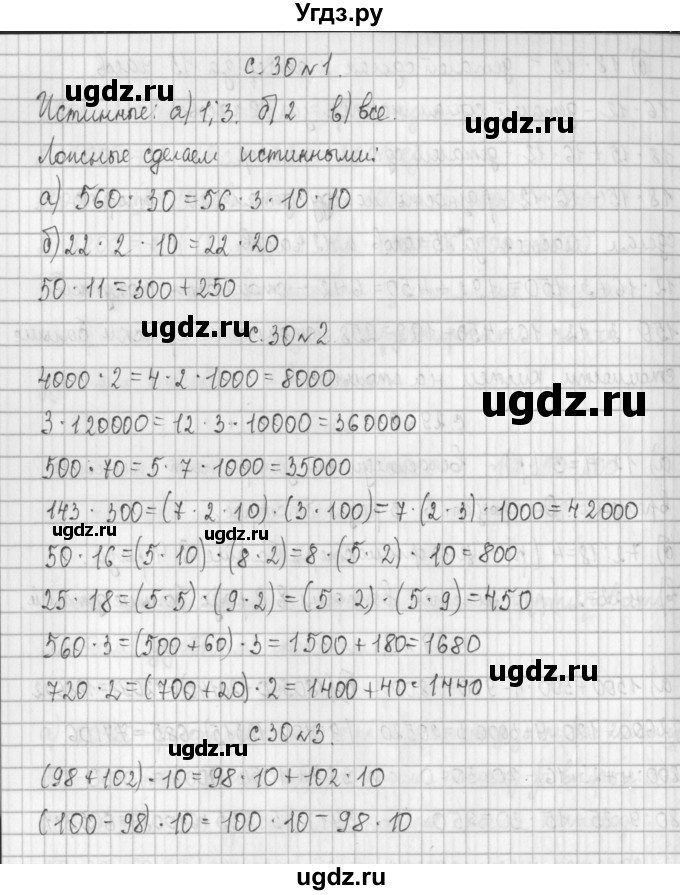 Угдз.ру
с. 30 №1.
ugdz.ru
ugdz.ru
Истинные: а) 1; 3. б) 2 в) все.
Ложные сделаем истинными:
а) 560 · 30 = 56 · 3 · 10 · 10
б) 22 · 2 · 10 = 22 · 20
50 · 11 = 300 + 250
ugdz.ru
с. 30 №2.
4000 · 2 = 4 · 2 · 1000 = 8000
ugdz.ru
3 · 120000 = 12 · 3 · 10000 = 360000
500 · 70 = 5 · 7 · 1000 = 35000
143 · 300 = (7 · 2 · 10) · (3 · 100) = 7 · (2 · 3) · 1000 = 42000
ugdz.ru
ugdz.ru
50 · 16 = (5 · 10) · (8 · 2) = 8 · (5 · 2) · 10 = 800
25 · 18 = (5 · 5) · (9 · 2) = (5 · 2) · (5 · 9) = 450
560 · 3 = (500 + 60) · 3 = 1500 + 180 = 1680
ugdz.ru
720 · 2 = (700 + 20) · 2 = 1400 + 40 = 1440
с. 30 №3.
ugdz.ru
(98 + 102) · 10 = 98 · 10 + 102 · 10
(100 - 98) · 10 = 100 · 10 - 98 · 10
ugdz.ru